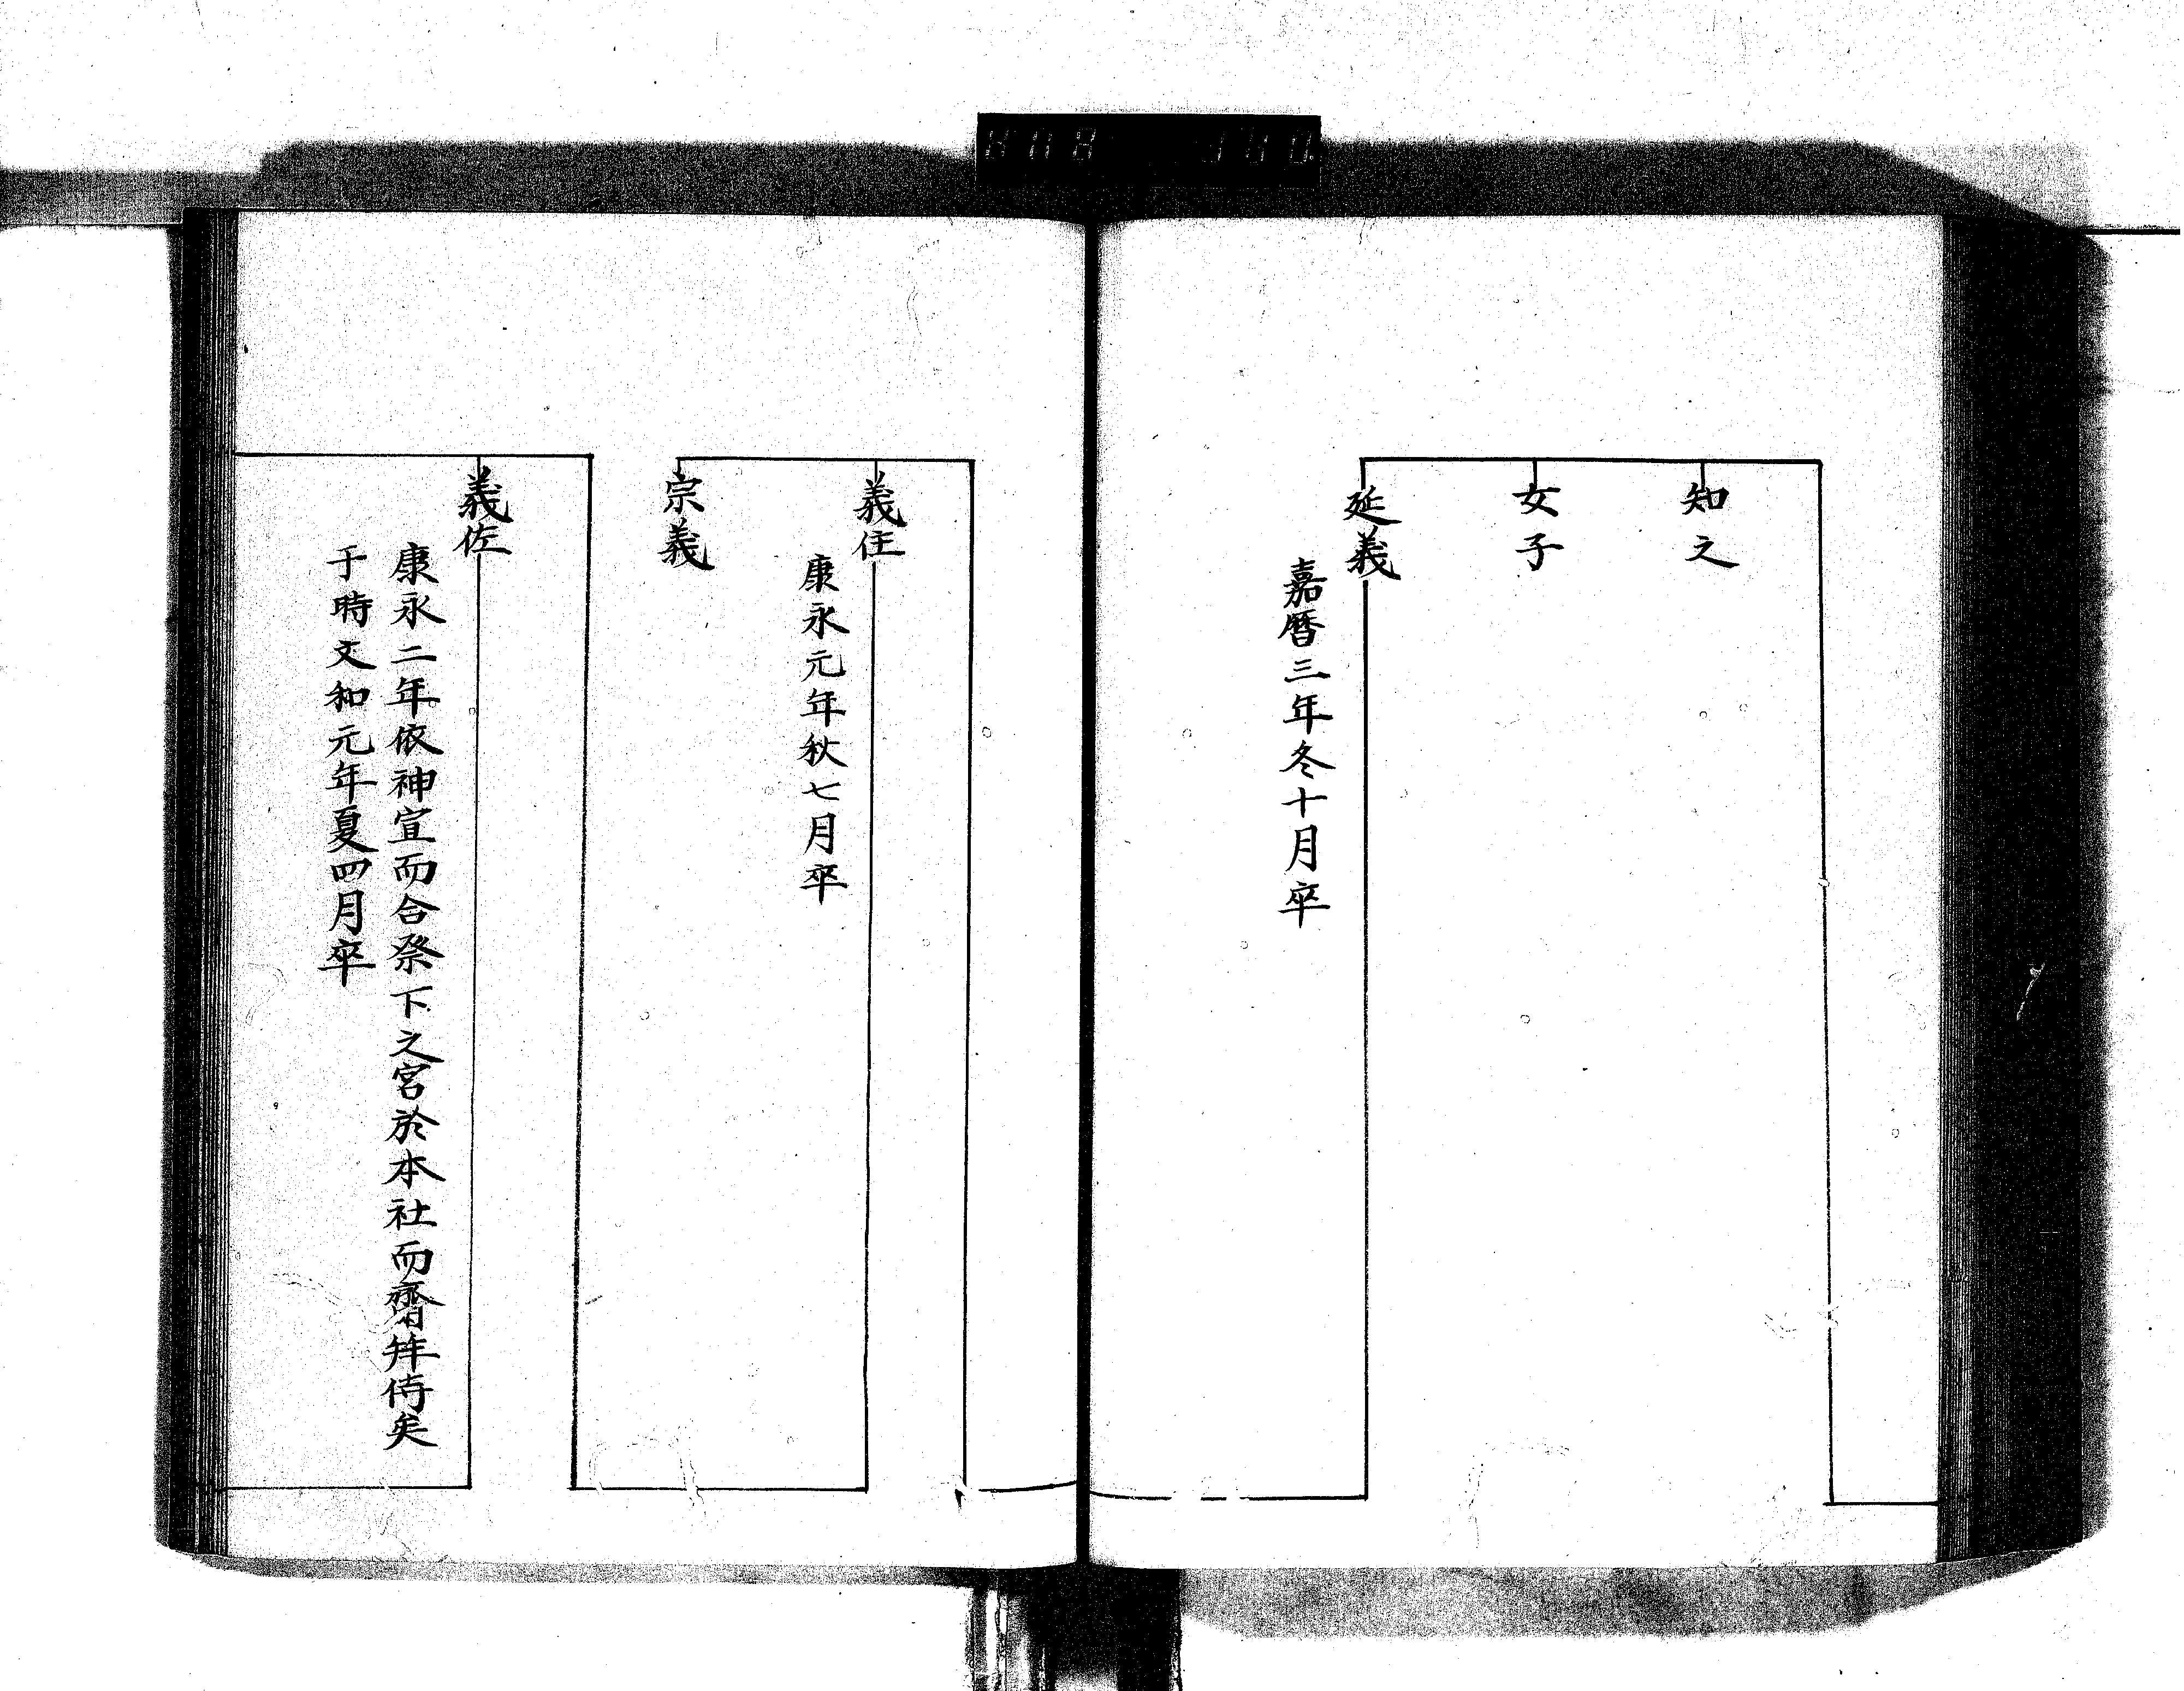 知之
女子
延義
嘉暦三年冬十月卒
義住
康永元年秋七月卒
宗義
義佐
康永二年依神宣而合祭下之宮於本社而齋拝侍矣
于時文和元年夏四月卒